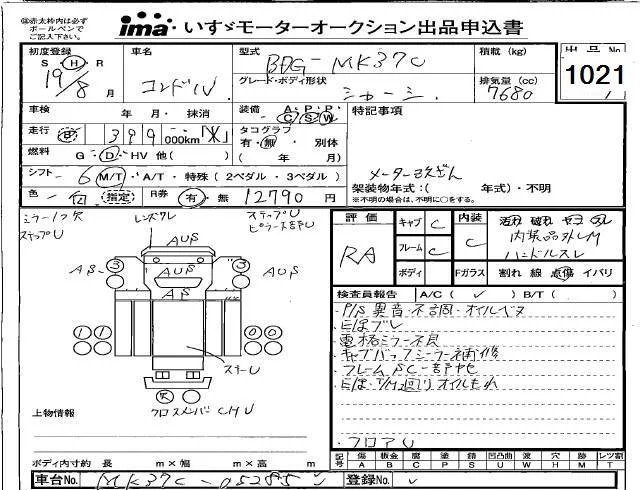 ※赤太枠内は必ず
ボールペンで
ご記入下さい。
ima いすゞモーターオークション出品申込書
初度登録 車名 型式 積載(kg) 出品No.
S H R 19/8 月 コンドル BDG-MK37C 1021
グレード・ボディ形状 シャーシ 排気量(cc) 7680
車検 年 月・抹消 装備 A P P C S W 特記事項
走行 399 000km
タコグラフ 有・無・別体
燃料 G D HV 他( ) ( 年 月)
シフト 6 M/T・A/T・特殊(2ペダル・3ペダル)
メーター改ざん
架装物年式:( 年式)・不明
※不明の場合は、不明に○をする。
色 白 指定 R券 有・無 12790 円
ミラー1ヶ欠 レンズワレ ステップU
ステップU
AUS
3 AUS 3 AUS
AS
1 1 0 0
ステーU
欠
クロスメンバーCHU
上物情報
ボディ内寸約 長 m×幅 m×高 m
評価 キャブ C 内装
RA フレーム C C 内装品外しM
ハンドルスレ
ボディ Fガラス 割れ 線 点傷 イバリ
検査員報告 A/C( ✓ ) B/T( )
・P/S異音・不調・オイルモレ
・電格ミラー不良
・キャブバックシーラー補修
・フレームSC一部サビ
・フロアU
記号 傷 板金 腐 塗 錆 凹凸曲 波 穴 跡 レンズ割
A B C P S U W H M T
車台No. MK37C-05285
登録No.